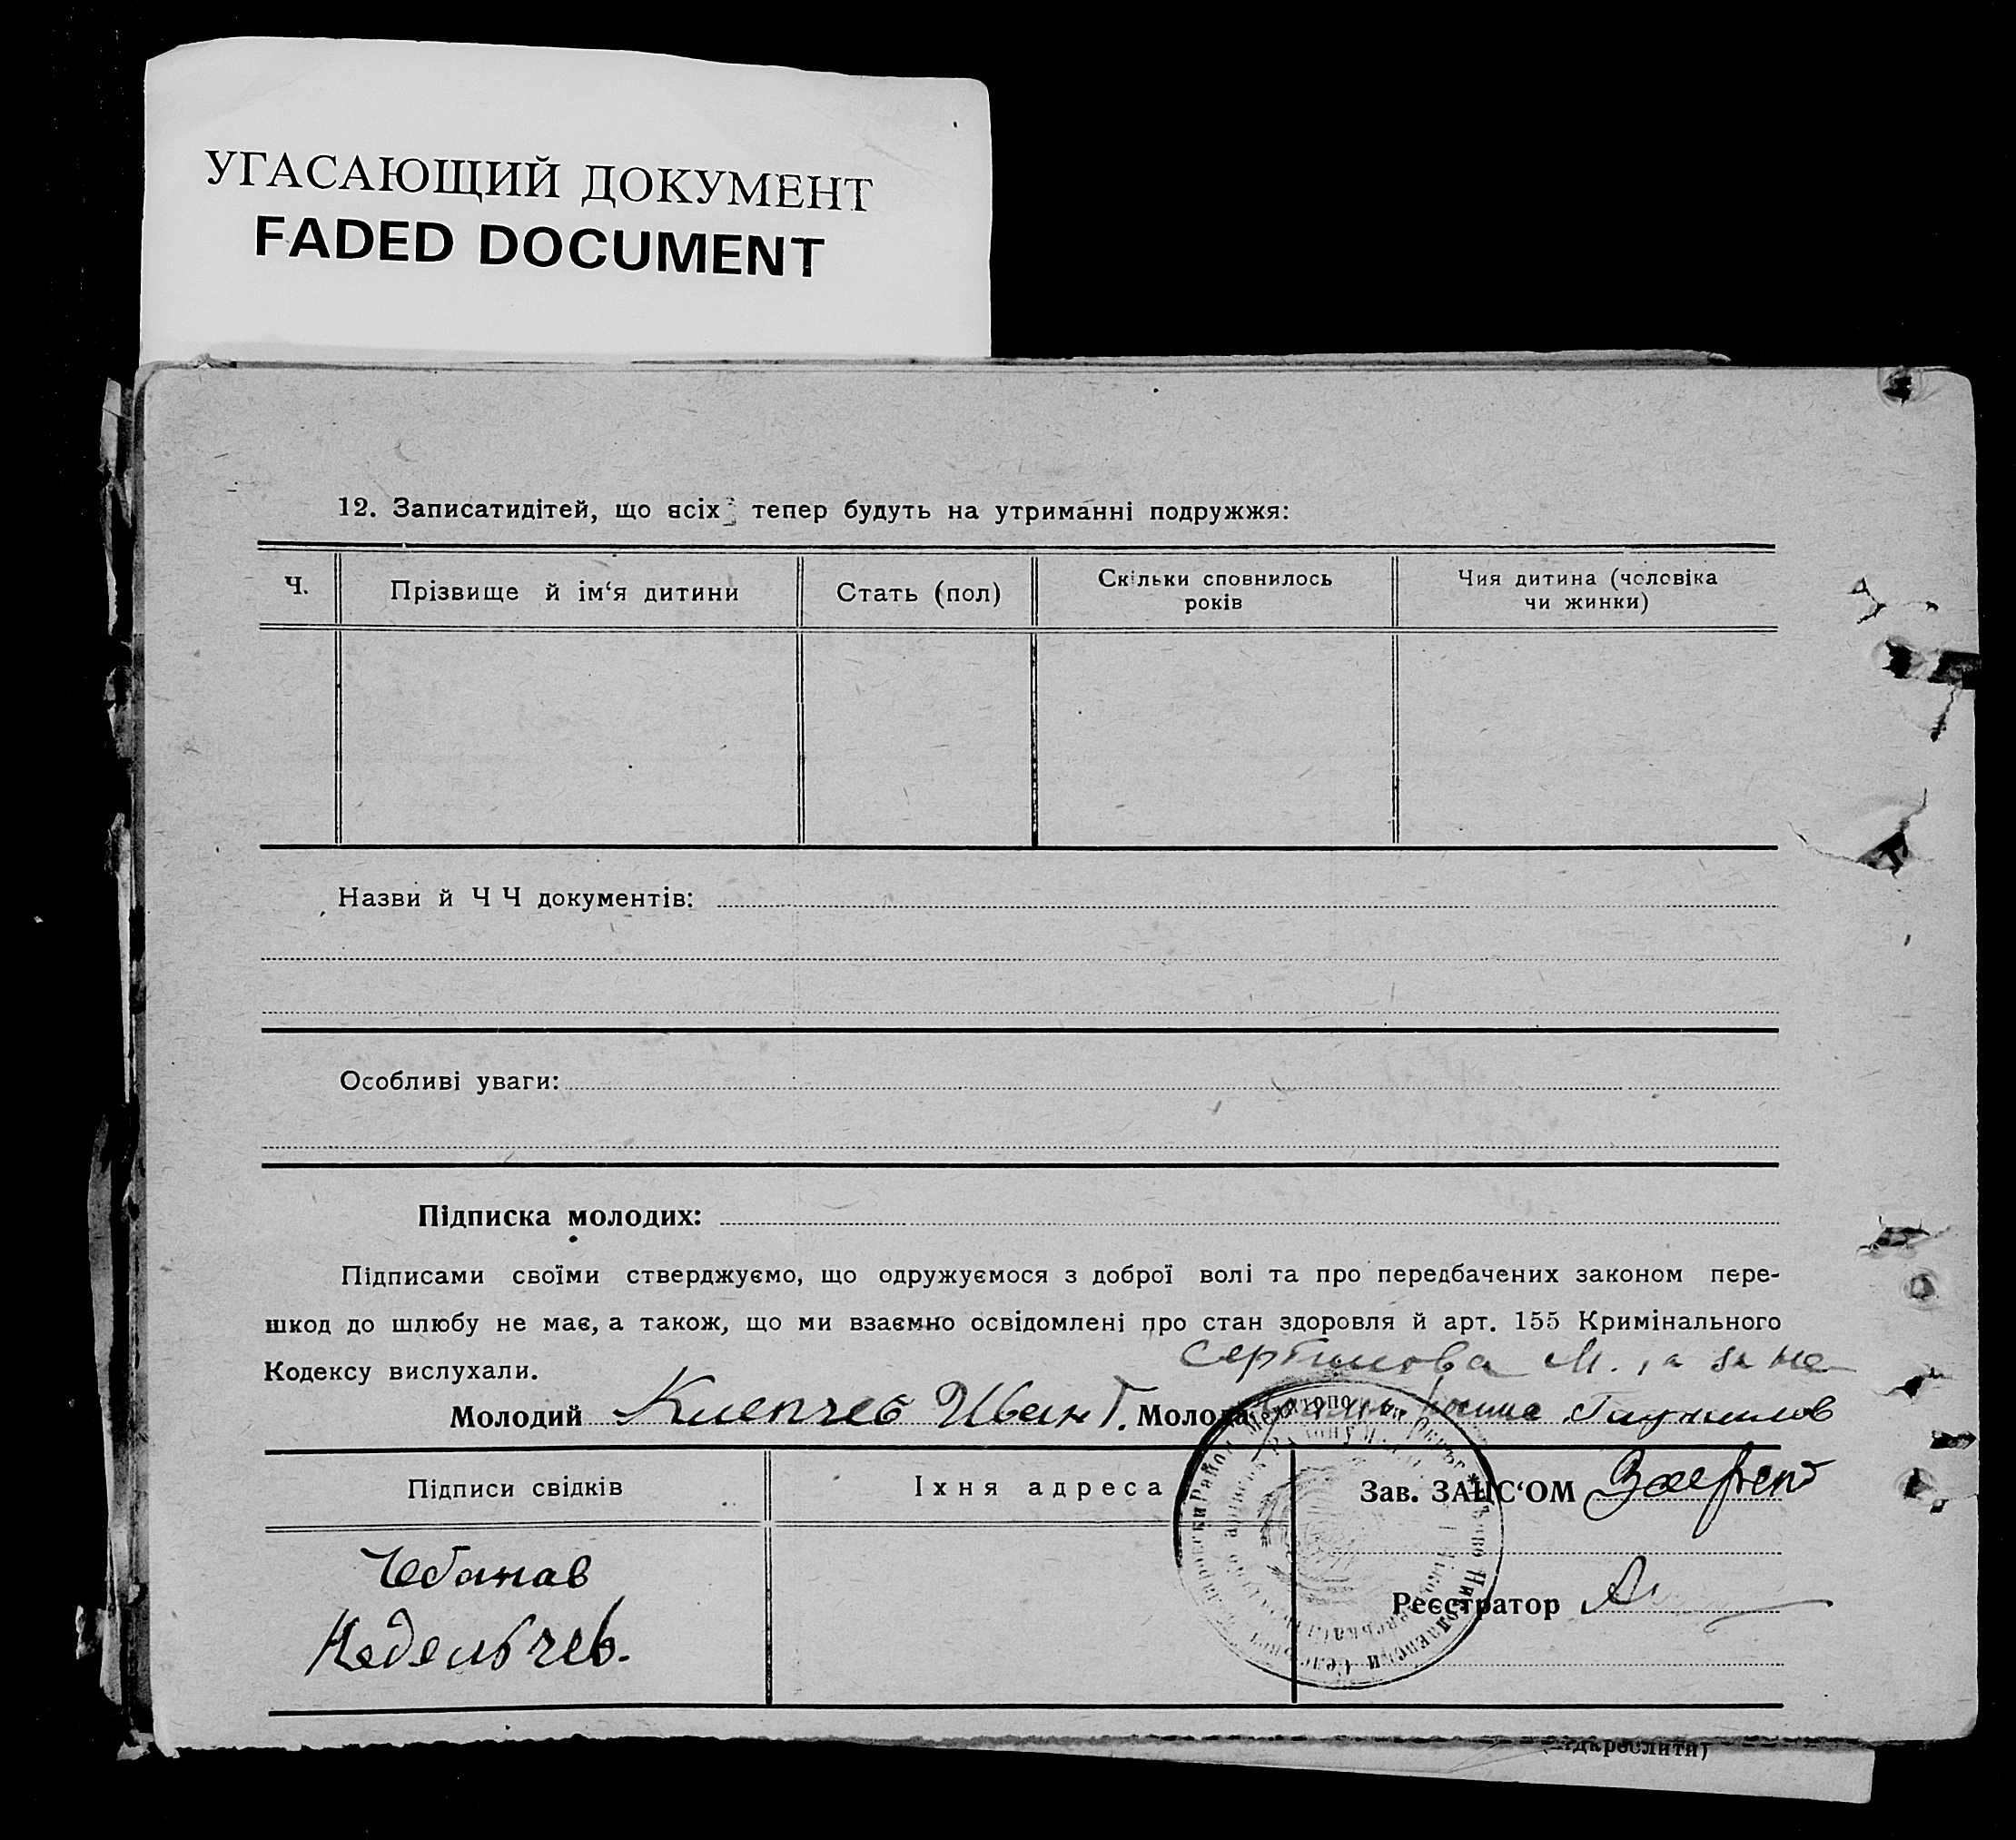 УГАСАЮЩИЙ ДОКУМЕНТ
FADED DOCUMENT
12. Записатидітей, що всіх тепер будуть на утриманні подружжя:
Ч.
Прізвище й ім‘я дитини
Стать (пол)
Скільки сповнилось
років
Чия дитина (чоловіка
чи жинки)
Назви й Ч Ч документів:
Особливі уваги:
Підписка молодих:
Підписами своїми стверджуємо, що одружуємося з доброї волі та про передбачених законом пере-
шкод до шлюбу не має, а також, що ми взаємно освідомлені про стан здоровля й арт. 155 Кримінального
Кодексу вислухали.
М., а за не
Молодий Клепчев Иван Г. Молода
Підписи свідків
Їхня адреса
Зав. ЗАПС‘ОМ
Чебанав
Недельчев.
Реєстратор
(підкреслити)